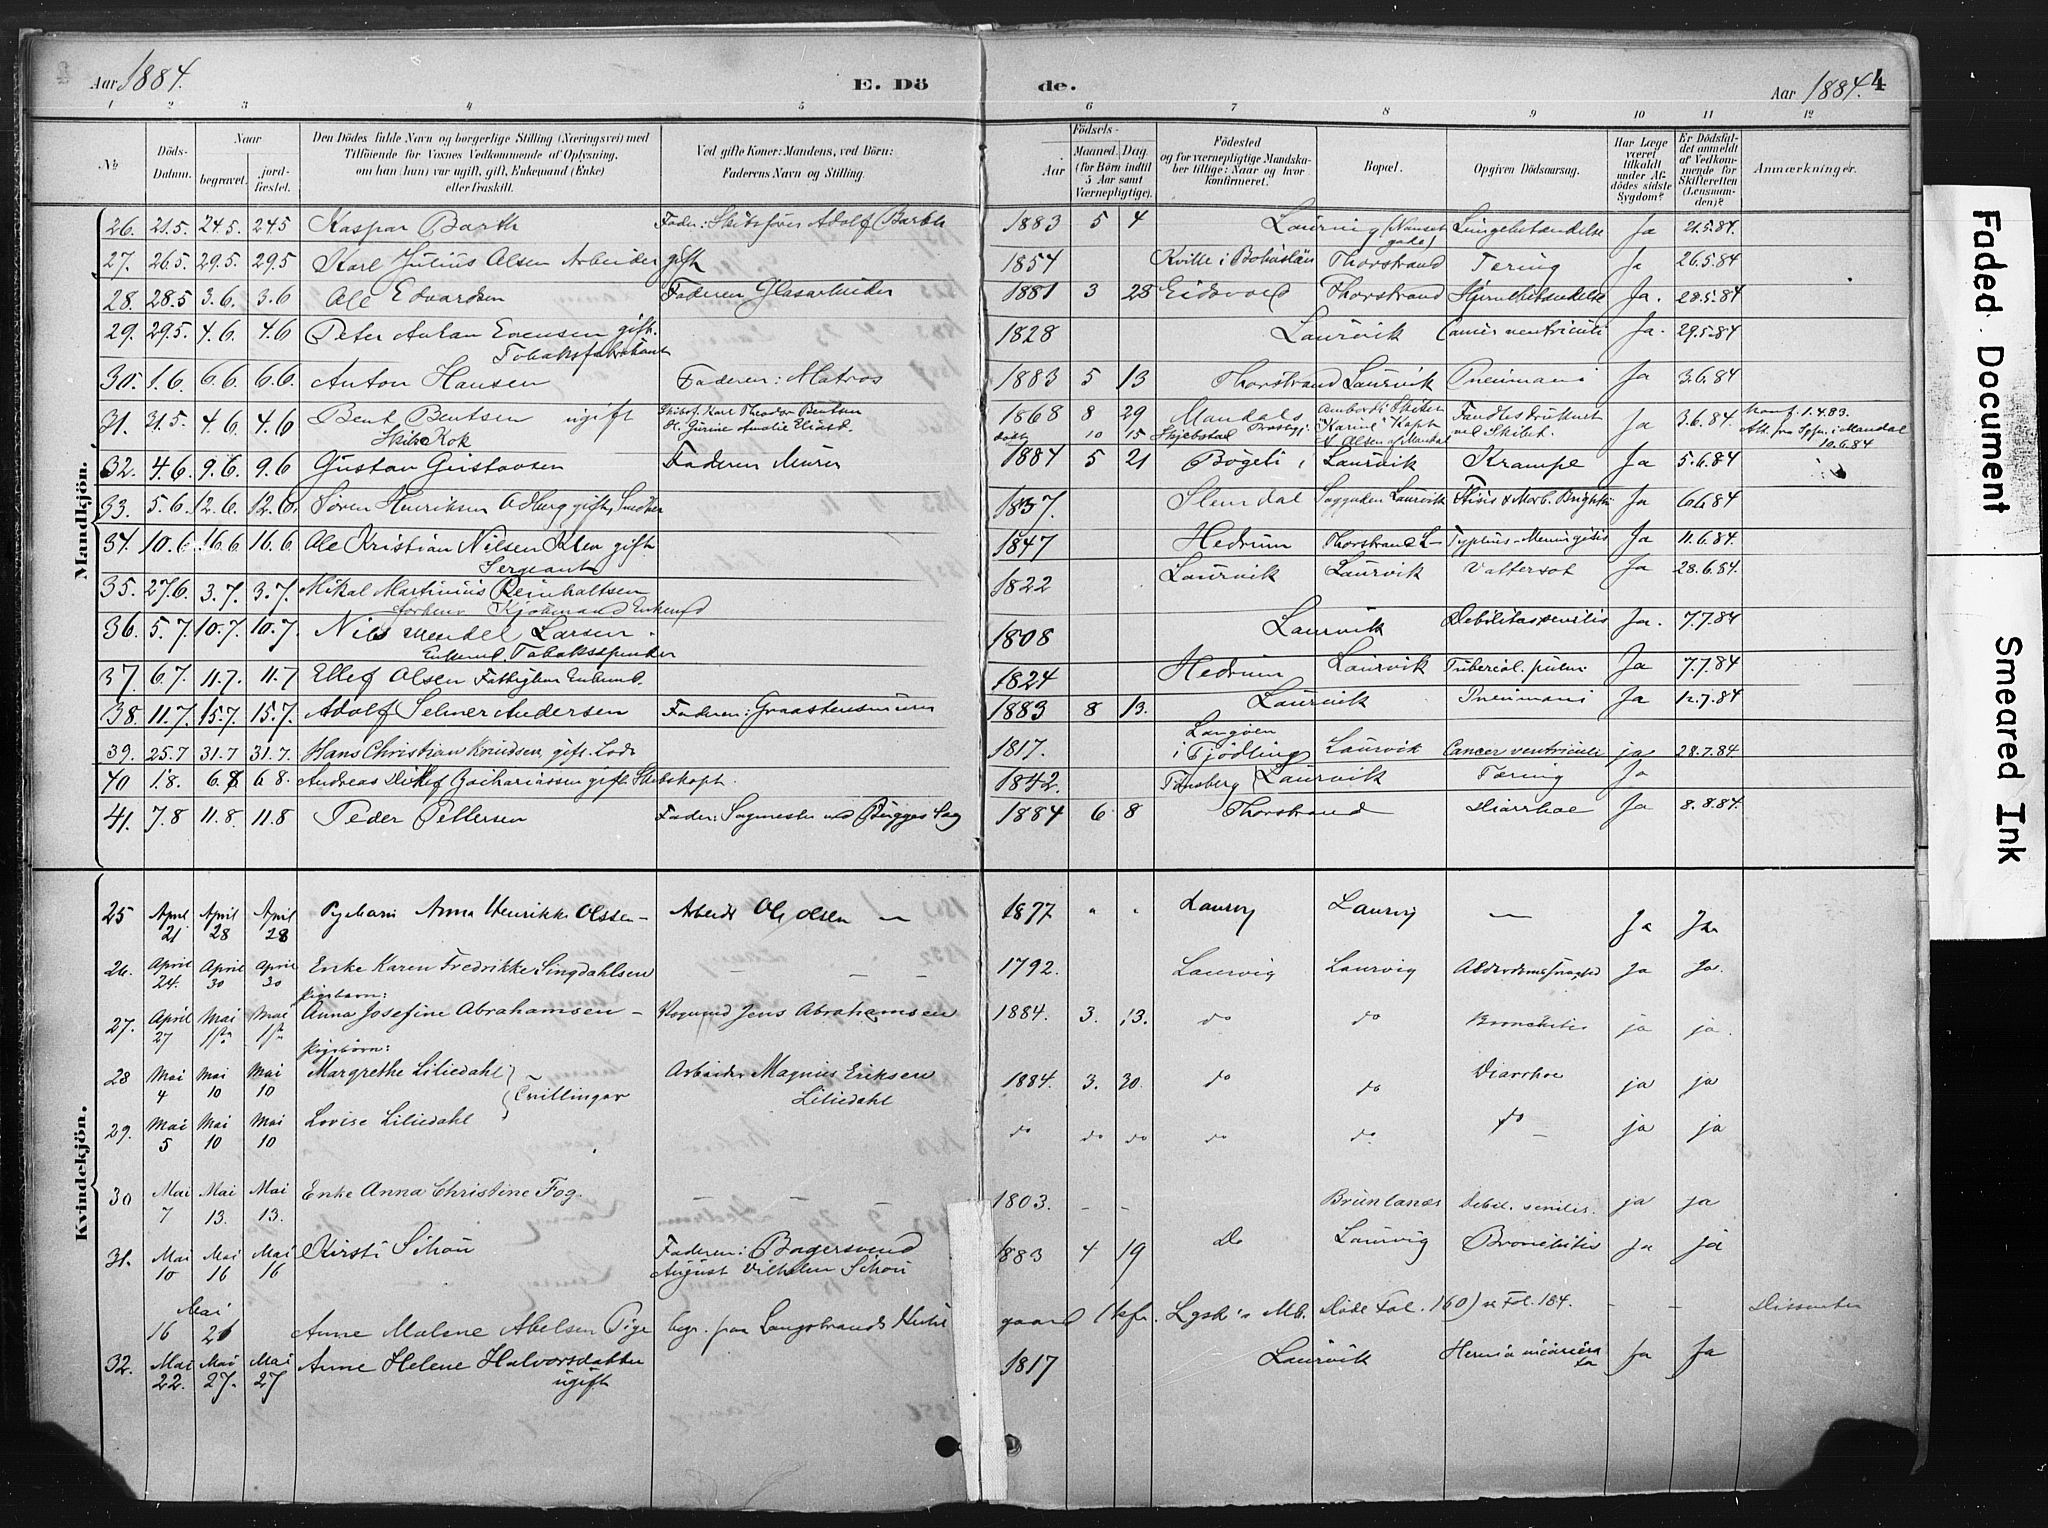 Aar 1884.
E. Dö
de.
Aar 1884. 4
1 2 3 4 5 6 7 8 9 10 11 12
No
Döds-Datum.
Naar
begravet.
jord-fæstet.
Den Dödes fulde Navn og borgerlige Stilling (Næringsvei) med
Tilföiende for Voxnes Vedkommende af Oplysning,
om han (hun) var ugift, gift, Enkemand (Enke)
eller fraskilt.
Ved gifte Koner: Mandens, ved Börn:
Faderens Navn og Stilling.
Födsels-
Aar
Maaned. Dag.
(for Börn indtil
5 Aar samt
Værnepligtige).
Födested
og for værnepligtige Mandska-
ber tillige: Naar og hvor
konfirmeret.
Bopæl.
Opgiven Dödsaarsag.
Har Læge
været
tilkaldt
under Af-
dödes sidste
Sygdom?
Er Dödsfal-
det anmeldt
af Vedkom-
mende for
Skifteretten
(Lensman-
den)?
Anmærkninger.
Mandkjön.
26. 21.5. 24.5. 24.5 Kaspar Barth Fader: Skibsförer Adolf Barth 1883 5 4 Laurvig Lungebetændelse Ja 21.5.84.
27. 26.5. 29.5. 29.5 Karl Julius Olsen Arbeider gift 1854 Kville i Bohuslän Thorstrand Tæring Ja 26.5.84
28. 28.5 3.6. 3.6 Ole Edvardsen Faderen Glasarbeider 1881 3 28 Eidsvold Thorstrand Hjernebetændelse Ja. 28.5.84
29. 29.5. 4.6. 4.6 Peter Anton Evensen gift. 1828 Laurvik Cancer ventriculi Ja. 29.5.84
Tobaksfabrikant
30. 1.6. 6.6. 6.6. Anton Hansen Faderen: Matros 1883 5 13 Thorstrand Laurvik Pneumoni Ja 3.6.84
31. 31.5 4.6. 4.6 Bent Bentsen ugift Karl Theodor Bentsen 1868 8 29 Mandals Ja 3.6.84 Konf. 1.4.83.
Skibs Kok 10 15 Skjebstad ved Skibet. Mandal
10.6.84
32. 4.6. 9.6. 9.6 Gustav Gustavsen Faderen Murer 1884 5 21 Bögeli, Laurvik Krampe Ja 5.6.84
33. 5.6. 12.6. 12.6. Sören Henriksen Adberg gift, Smed 1837. Slemdal Laurvik & Morb. Brightii Ja 6.6.84
34. 10.6. 16.6 16.6 Ole Kristian Nilsen gift 1847 Hedrum Thorstrand L- Typhus-Meningitis Ja 11.6.84.
Sergeant
35. 27.6. 3.7. 3.7. Mikal Martinius Reinholtsen 1822 Laurvik Laurvik Vattersot Ja 28.6.84
forhenv. Kjöbmand Enkemd
36. 5.7. 10.7. 10.7. Nils Mendel Larsen 1808 Laurvik Debilitas senilis Ja. 7.7.84
Enkemd. Tobaksspinder
37. 6.7. 11.7. 11.7 Ellef Olsen Fattiglem Enkemd. 1824 Hedrum Laurvik Tubercul. pulm. Ja 7.7.84
38. 11.7. 15.7. 15.7. Adolf Selmer Andersen Faderen: Graastensmurer 1883 8 13. Laurvik Pneumoni Ja 12.7.84
39. 25.7 31.7 31.7. Hans Christian Knudsen, gift. Lods 1817. Langöen i Tjödling Laurvik Cancer ventriculi ja 28.7.84
40 1.8. 6.8 6 8. Andreas Ditlef Zachariassen gift Skibskapt. 1842. Tönsberg Laurvik Tæring Ja
41. 7.8 11.8. 11.8 Peder Pettersen Fader: Sagmester ved Brygges Sag 1884 6 8 Thorstrand Diarrhoe Ja 8.8.84.
Kvindekjön.
25 April 21 April 28 April 28 Pigebarn Anna Henrikke Olssen - Arbeid. Ole Olsen - 1877 " " Laurvig Laurvig - Ja Ja
26. April 24. April 30 April 30 Enke Karen Fredrikke Lingdahlsen - - - 1792. Laurvig Laurvig Alderdomssvaghed Ja Ja.
Pigebarn:
27. April 27 Mai 1ste Mai 1ste Anna Josefine Abrahamsen - Vognmd Jens Abrahamsen 1884. 3. 13. do do Bronchitis ja ja.
Pigebörn:
28 Mai 4 Mai 10 Mai 10 Margrethe Liliedahl Tvillinger Arbeider Magnus Eriksen Liliedahl 1884. 3. 30. do do Diarrhoe ja ja
29. Mai 5 Mai 10 Mai 10 Lovise Liliedahl do do do do do do - ja ja
30 Mai 7 Mai 13. Mai 13. Enke Anna Christine Fog. - - 1803. - - Brunlanæs Debil. senilis. ja ja
31. Mai 10 Mai 16 Mai 16 Kirsti Schou Faderen: Bagersvend August Vilhelm Schou 1883 4 19 Do Laurvig Bronchitis Ja ja
Mai 16 21 Anne Malene Abelsen Pige begr. paa Langestrands Kirkegaard Ikfr. Lysk's Mb. Döde Fol. 160) se Fol. 184. - - Dissenter
32. Mai 22. Mai 27. Mai 27 Anne Helene Halvorsdatter ugift 1817 Laurvik Hernia incarcerata Ja Ja
Faded Document
Smeared Ink